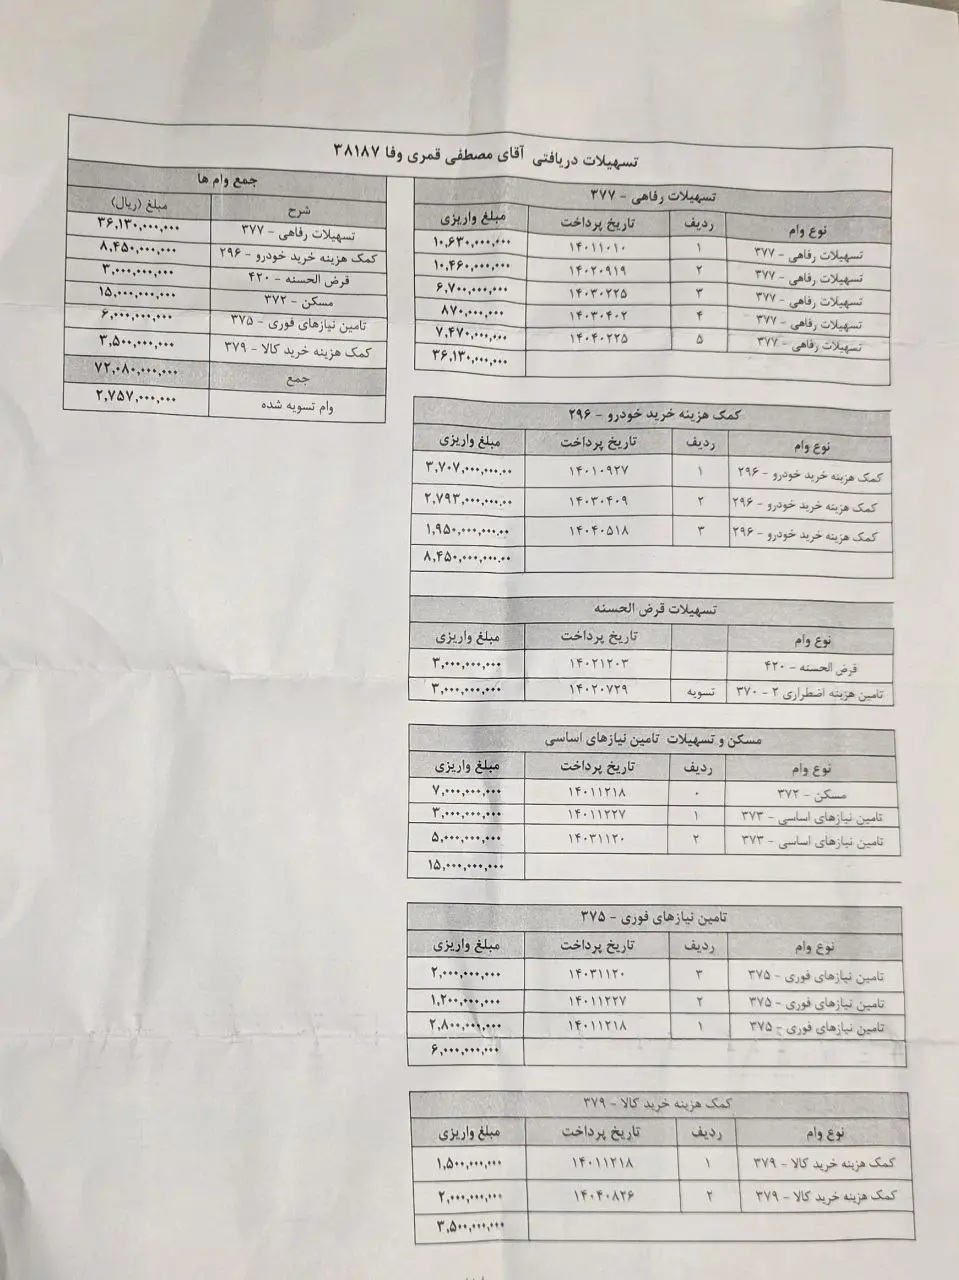 تسهیلات دریافتی آقای مصطفی قمری وفا ۳۸۱۸۷
تسهیلات رفاهی - ۳۷۷
نوع وام ردیف تاریخ پرداخت مبلغ واریزی
تسهیلات رفاهی - ۳۷۷ ۱ ۱۴۰۱۱۰۱۰ ۱۰,۶۳۰,۰۰۰,۰۰۰
تسهیلات رفاهی - ۳۷۷ ۲ ۱۴۰۲۰۹۱۹ ۱۰,۴۶۰,۰۰۰,۰۰۰
تسهیلات رفاهی - ۳۷۷ ۳ ۱۴۰۳۰۲۲۵ ۶,۷۰۰,۰۰۰,۰۰۰
تسهیلات رفاهی - ۳۷۷ ۴ ۱۴۰۳۰۴۰۲ ۸۷۰,۰۰۰,۰۰۰
تسهیلات رفاهی - ۳۷۷ ۵ ۱۴۰۴۰۲۲۵ ۷,۴۷۰,۰۰۰,۰۰۰
۳۶,۱۳۰,۰۰۰,۰۰۰
جمع وام ها
شرح مبلغ (ریال)
تسهیلات رفاهی - ۳۷۷ ۳۶,۱۳۰,۰۰۰,۰۰۰
کمک هزینه خرید خودرو - ۲۹۶ ۸,۴۵۰,۰۰۰,۰۰۰
قرض الحسنه - ۴۲۰ ۳,۰۰۰,۰۰۰,۰۰۰
مسکن - ۳۷۲ ۱۵,۰۰۰,۰۰۰,۰۰۰
تامین نیازهای فوری - ۳۷۵ ۶,۰۰۰,۰۰۰,۰۰۰
کمک هزینه خرید کالا - ۳۷۹ ۳,۵۰۰,۰۰۰,۰۰۰
جمع ۷۲,۰۸۰,۰۰۰,۰۰۰
وام تسویه شده ۲,۷۵۷,۰۰۰,۰۰۰
کمک هزینه خرید خودرو - ۲۹۶
نوع وام ردیف تاریخ پرداخت مبلغ واریزی
کمک هزینه خرید خودرو - ۲۹۶ ۱ ۱۴۰۱۰۹۲۷ ۳,۷۰۷,۰۰۰,۰۰۰.۰۰
کمک هزینه خرید خودرو - ۲۹۶ ۲ ۱۴۰۳۰۴۰۹ ۲,۷۹۳,۰۰۰,۰۰۰.۰۰
کمک هزینه خرید خودرو - ۲۹۶ ۳ ۱۴۰۴۰۵۱۸ ۱,۹۵۰,۰۰۰,۰۰۰.۰۰
۸,۴۵۰,۰۰۰,۰۰۰.۰۰
تسهیلات قرض الحسنه
نوع وام تاریخ پرداخت مبلغ واریزی
قرض الحسنه - ۴۲۰ ۱۴۰۲۱۲۰۳ ۳,۰۰۰,۰۰۰,۰۰۰
تامین هزینه اضطراری ۲ - ۳۷۰ تسویه ۱۴۰۲۰۷۲۹ ۳,۰۰۰,۰۰۰,۰۰۰
مسکن و تسهیلات تامین نیازهای اساسی
نوع وام ردیف تاریخ پرداخت مبلغ واریزی
مسکن - ۳۷۲ ۰ ۱۴۰۱۱۲۱۸ ۷,۰۰۰,۰۰۰,۰۰۰
تامین نیازهای اساسی - ۳۷۳ ۱ ۱۴۰۱۱۲۲۷ ۳,۰۰۰,۰۰۰,۰۰۰
تامین نیازهای اساسی - ۳۷۳ ۲ ۱۴۰۳۱۱۲۰ ۵,۰۰۰,۰۰۰,۰۰۰
۱۵,۰۰۰,۰۰۰,۰۰۰
تامین نیازهای فوری - ۳۷۵
نوع وام ردیف تاریخ پرداخت مبلغ واریزی
تامین نیازهای فوری - ۳۷۵ ۳ ۱۴۰۳۱۱۲۰ ۲,۰۰۰,۰۰۰,۰۰۰
تامین نیازهای فوری - ۳۷۵ ۲ ۱۴۰۱۱۲۲۷ ۱,۲۰۰,۰۰۰,۰۰۰
تامین نیازهای فوری - ۳۷۵ ۱ ۱۴۰۱۱۲۱۸ ۲,۸۰۰,۰۰۰,۰۰۰
۶,۰۰۰,۰۰۰,۰۰۰
کمک هزینه خرید کالا - ۳۷۹
نوع وام ردیف تاریخ پرداخت مبلغ واریزی
کمک هزینه خرید کالا - ۳۷۹ ۱ ۱۴۰۱۱۲۱۸ ۱,۵۰۰,۰۰۰,۰۰۰
کمک هزینه خرید کالا - ۳۷۹ ۲ ۱۴۰۴۰۸۲۶ ۲,۰۰۰,۰۰۰,۰۰۰
۳,۵۰۰,۰۰۰,۰۰۰